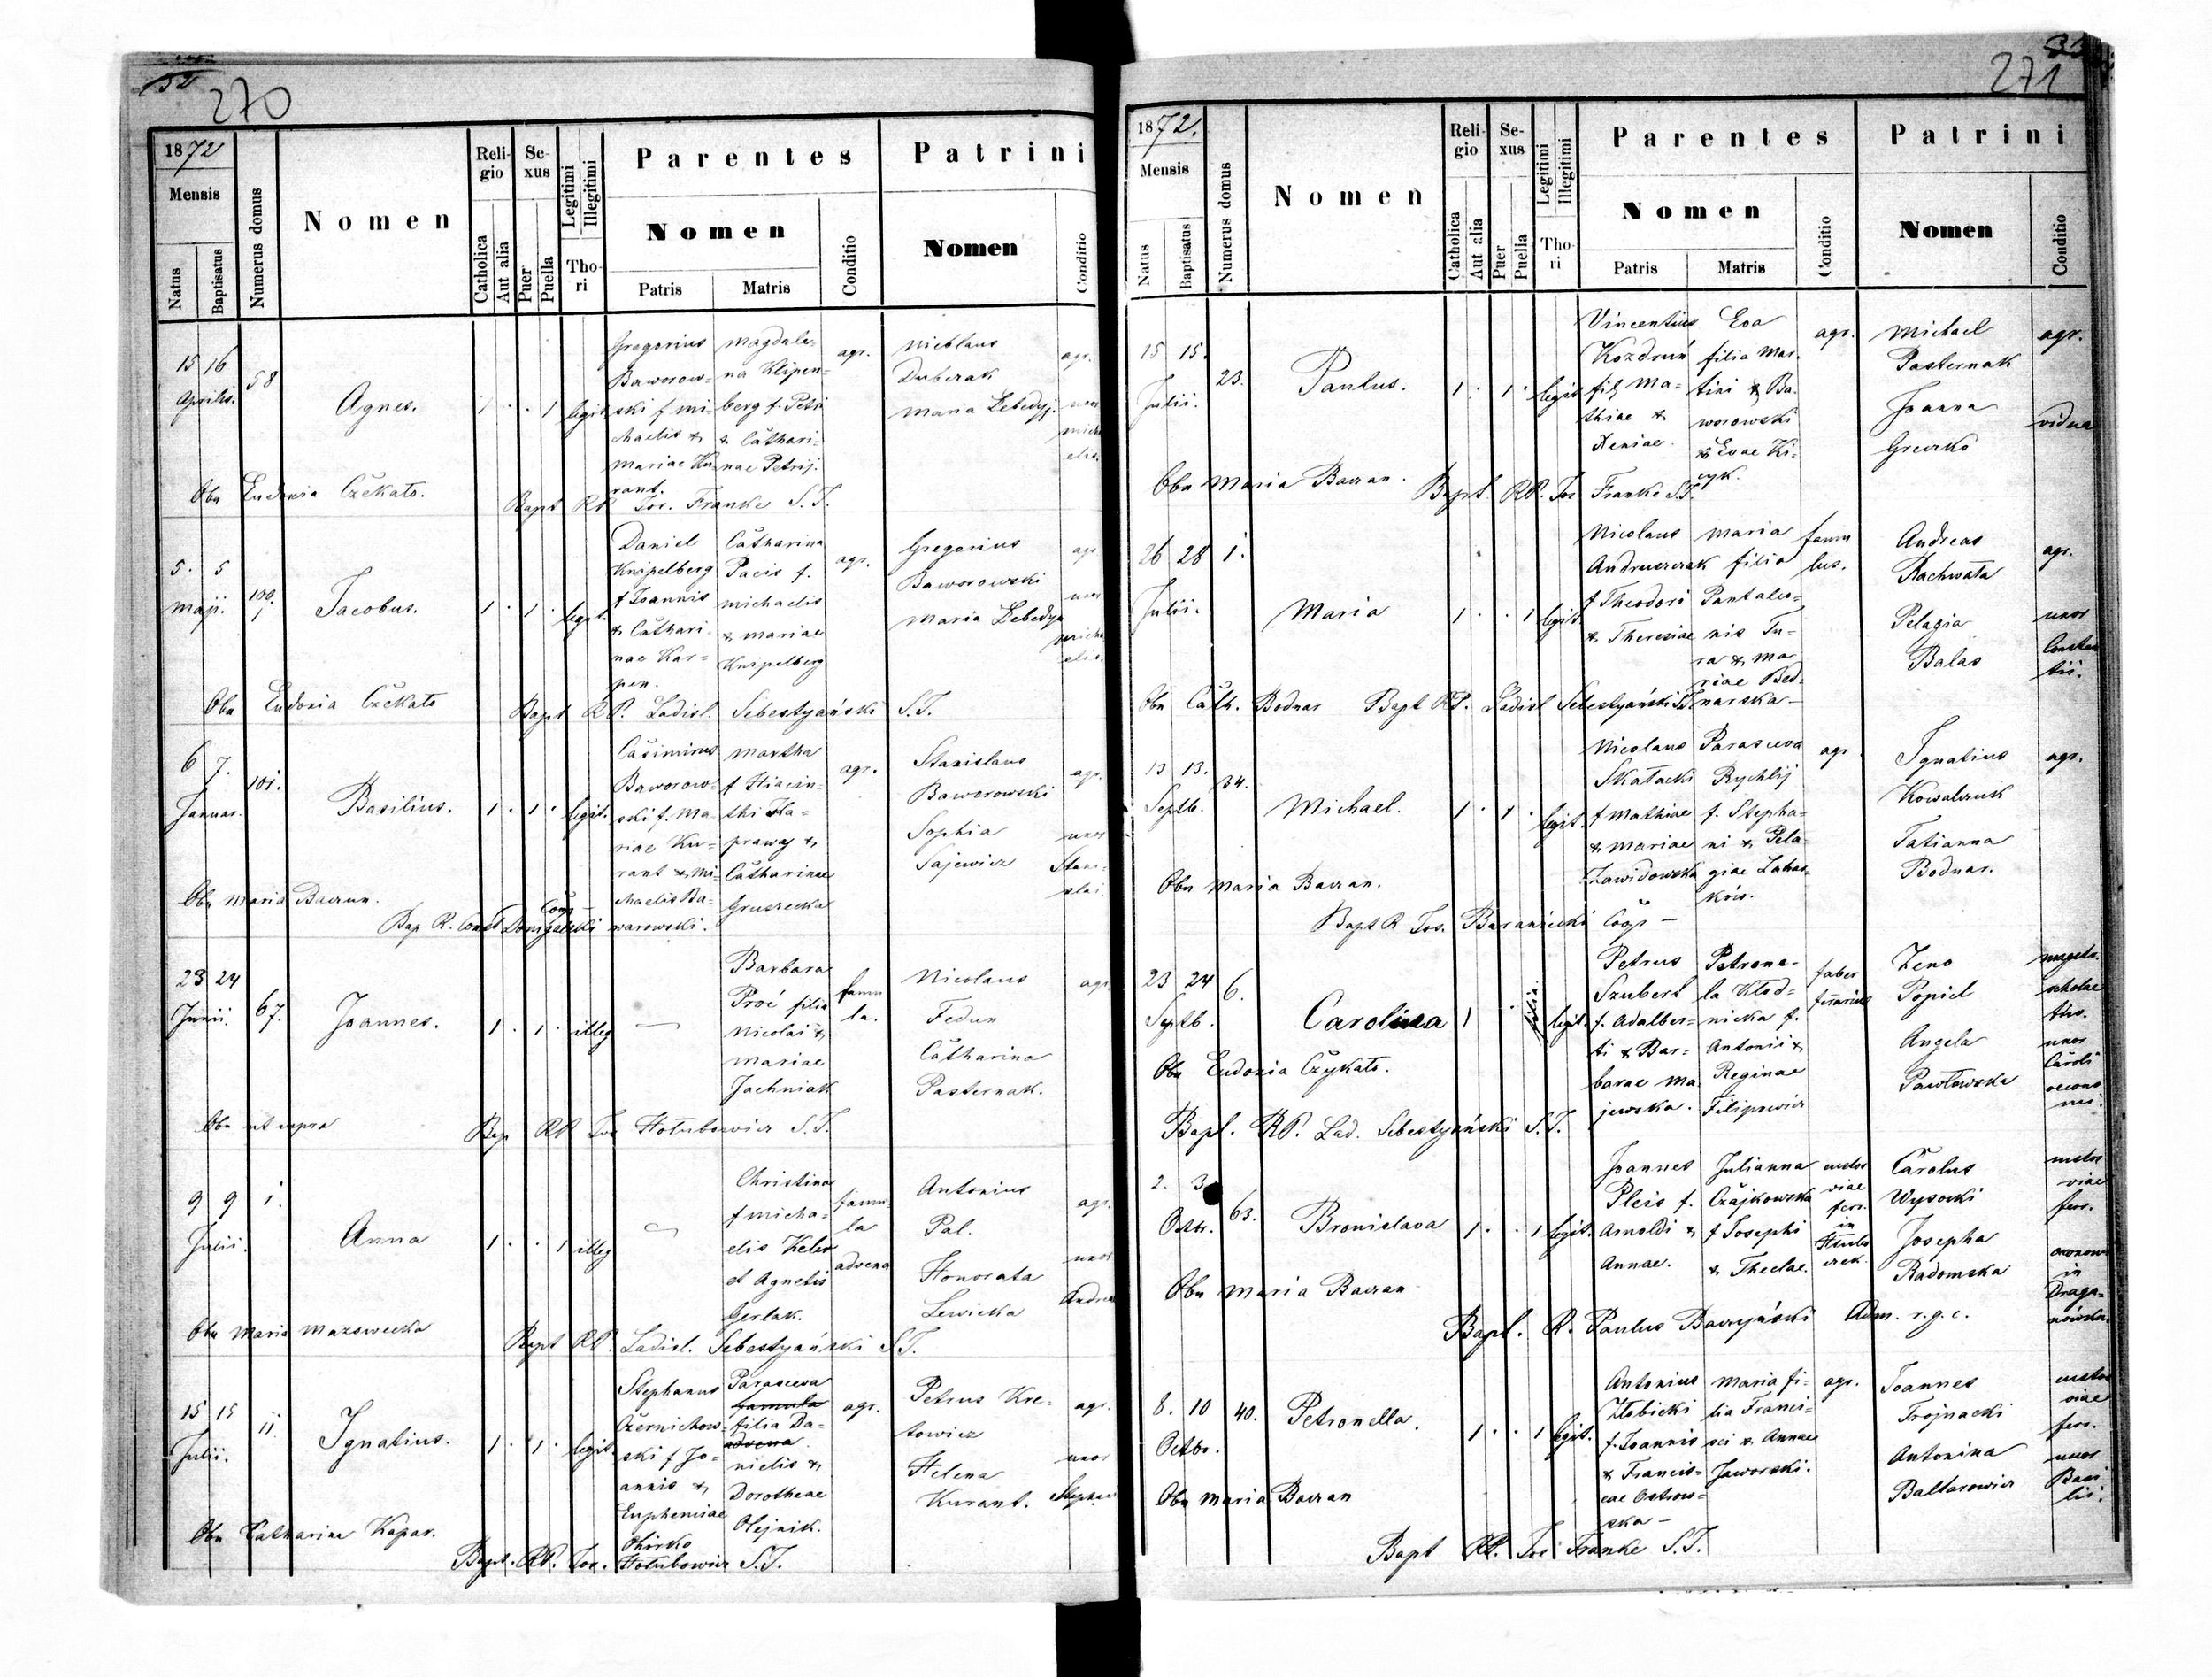 52
270
1872
Mensis
Natus
Baptisatus
Numerus domus
Nomen
Religio
Catholica
Aut alia
Sexus
Puer
Puella
Legitimi
Illegitimi
Thori
Parentes
Nomen
Patris
Matris
Conditio
Patrini
Nomen
Conditio
15 16
Aprilis.
58
Agnes.
1 . . 1 legit.
Gregorius
Baworow-
ski f Mi-
chaelis &
Mariae Ku-
rant.
Magdale-
na Klipen-
berg f. Petri
& Cathari-
nae Petrij.
agr.
Nicolaus
Duberak
Maria Lebedyj.
agr.
uxor
Obn Eudoxia Czekato.
Bapt RP Jos. Franke S.J.
5. 5
Maji.
100.
1
Jacobus.
1 . 1 . legit.
Daniel
Knipelberg
f Joannis
& Cathari-
nae Kar-
pen.
Catharina
Pacis f.
Michaelis
& Mariae
Knipelberg
agr.
Gregorius
Baworowski
Maria Lebedyj
agr
uxor
Obn Eudoxia Czekato
Bapt RP. Ladisl. Sebestyański S.J.
6 7.
Januar.
101.
Basilius.
1 . 1 . legit.
Casimirus
Baworow-
ski f. Ma-
riae Ku-
rant & Mi-
chaelis Ba-
warowski.
Martha
f Hiacin-
thi Na-
praway &
Catharinae
Gruszecka
agr.
Stanislaus
Baworowski
Sophia
Sajewicz
agr.
uxor
Stani-
slai.
Obn Maria Baczun.
Bap R. Const Domgalski Coop
23 24
Junii.
67.
Joannes.
1 . 1 . illeg
Barbara
Proć filia
Nicolai &
Mariae
Jachniak
famu
la.
Nicolaus
Fedun
Catharina
Pasternak.
agr.
Obn ut supra
Bap RP Jos Hołubowicz S.J.
9 9
Julii.
1.
Anna
1 . . 1 illeg
Christina
f Micha-
elis Keler
et Agnetis
Gerlak.
famu-
la
advena
Antonius
Pal.
Honorata
Lewicka
agr.
uxor
Obn Maria Mazowiecka
Bapt RP. Ladisl. Sebestyański S.J.
15 15
Julii.
11
Ignatius.
1 . 1 . legit.
Stephanus
Czernichow-
ski f Jo-
annis &
Euphemiae
Chirko
Parasceva
famula
filia Da-
advena
nielis &
Dorotheae
Olejnik.
agr.
Petrus Kre-
towicz
Helena
Kurant.
agr.
uxor
Obn Catharina Kapar.
Bapt. RP. Jos. Hołubowicz S.J.
33
271
1872.
Mensis
Natus
Baptisatus
Numerus domus
Nomen
Religio
Catholica
Aut alia
Sexus
Puer
Puella
Legitimi
Illegitimi
Thori
Parentes
Nomen
Patris
Matris
Conditio
Patrini
Nomen
Conditio
15 15.
Julii.
23.
Paulus.
1 . 1 . legit
Vincentius
Kozdruń
fil Ma-
thiae &
Xeniae.
Eva
filia Mar-
tini & Ba-
worowski
& Evae Ki-
cyk.
agr.
Michael
Pasternak
Joanna
Greczko
agr.
vidua
Obn Maria Baczan.
Bapt RP. Jos Franke S.J.
26 28
Julii.
1.
Maria
1 . . 1 legit.
Nicolaus
Andruszczak
f Theodori
& Theresiae
Maria
filia
Pantaleo-
nis Tu-
ra & Ma-
riae Bed-
narska-
famu
lus.
Andreas
Rachwata
Pelagia
Balas
agr.
uxor
Obn Cath. Bodnar Bapt RP. Ladisl Sebestyański S.J.
13 13.
Septb.
34.
Michael.
1 . 1 . legit.
Nicolaus
Skałacki
f Mathiae
& Mariae
Zawidowska
Parasceva
Rychlij
f. Stepha-
ni & Pela-
giae Zahar-
ków.
agr.
Ignatius
Kowalczuk
Tatianna
Bodnar.
agr.
Obn Maria Baczan.
Bapt R Jos. Baraniecki Coop-
23 24
Septb.
6.
Carolina
1 . filia. legit.
Petrus
Szubert
f. Adalber-
ti & Bar-
barae Ma-
jewska.
Petrone-
la Kłod-
nicka f.
Antonii &
Reginae
Filipowicz
faber
ferrarius
Zeno
Popiel
Angela
Pawłowska
magstr.
scholae
uxor
Caroli
oecono
mi.
Obn Eudoxia Czykato.
Bapt. RP. Lad. Sebestyański S.J.
2. 3
Octbr.
63.
Bronislava
1 . . 1 legit.
Joannes
Pleis f.
Arnoldi &
Annae.
Julianna
Czajkowska
f Josephi
& Theclae.
custos
viae
ferr.
in
Carolus
Wysocki
Josepha
Radomska
custos
viae
ferr.
in
Draga-
nówka.
Obn Maria Baczan
Bapt. R. Paulus Baczyński Adm. r.g.c.
8. 10
Octbr.
40.
Petronella.
1 . . 1 legit.
Antonius
Złobicki
f. Joannis
& Francis-
cae Ostrow-
ska-
Maria fi-
lia Franci-
sci & Annae
Jaworski.
agr.
Joannes
Trojnacki
Antonina
Baltarowicz
custos
viae
ferr.
uxor
Basi
lii.
Obn Maria Baczan
Bapt RP. Jos Franke S.J.